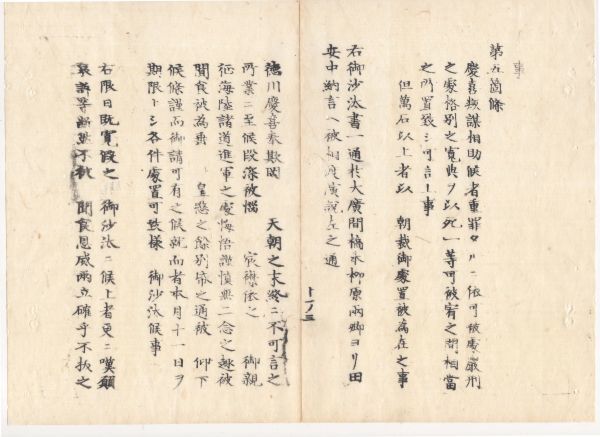 事
第五箇條
慶喜叛謀相助候者重罪タルニ依可被處嚴刑
之處格別之寛典ヲ以死一等可被宥之間相當
之所置致シ可言上事
但萬石以上者以 朝裁御處置被為在之事
右御沙汰書一通於大廣間橋本柳原両卿ヨリ田
安中納言ヘ被相渡演説左之通
徳川慶喜奉欺罔 天朝之末終ニ不可言之
所業ニ至候段深被惱 宸襟依之 御親
征海陸諸道進軍之處悔悟謹慎無二念之趣被
聞食被為垂 皇愍之餘別帋之通被 仰下
候條謹而御請可有之候就而者本月十一日ヲ
期限トシ各件處置可致様 御沙汰候事
右限日既寛假之 御沙汰ニ候上者更ニ嘆願
哀訴等断然不被 聞食恩威両立確乎不抜之